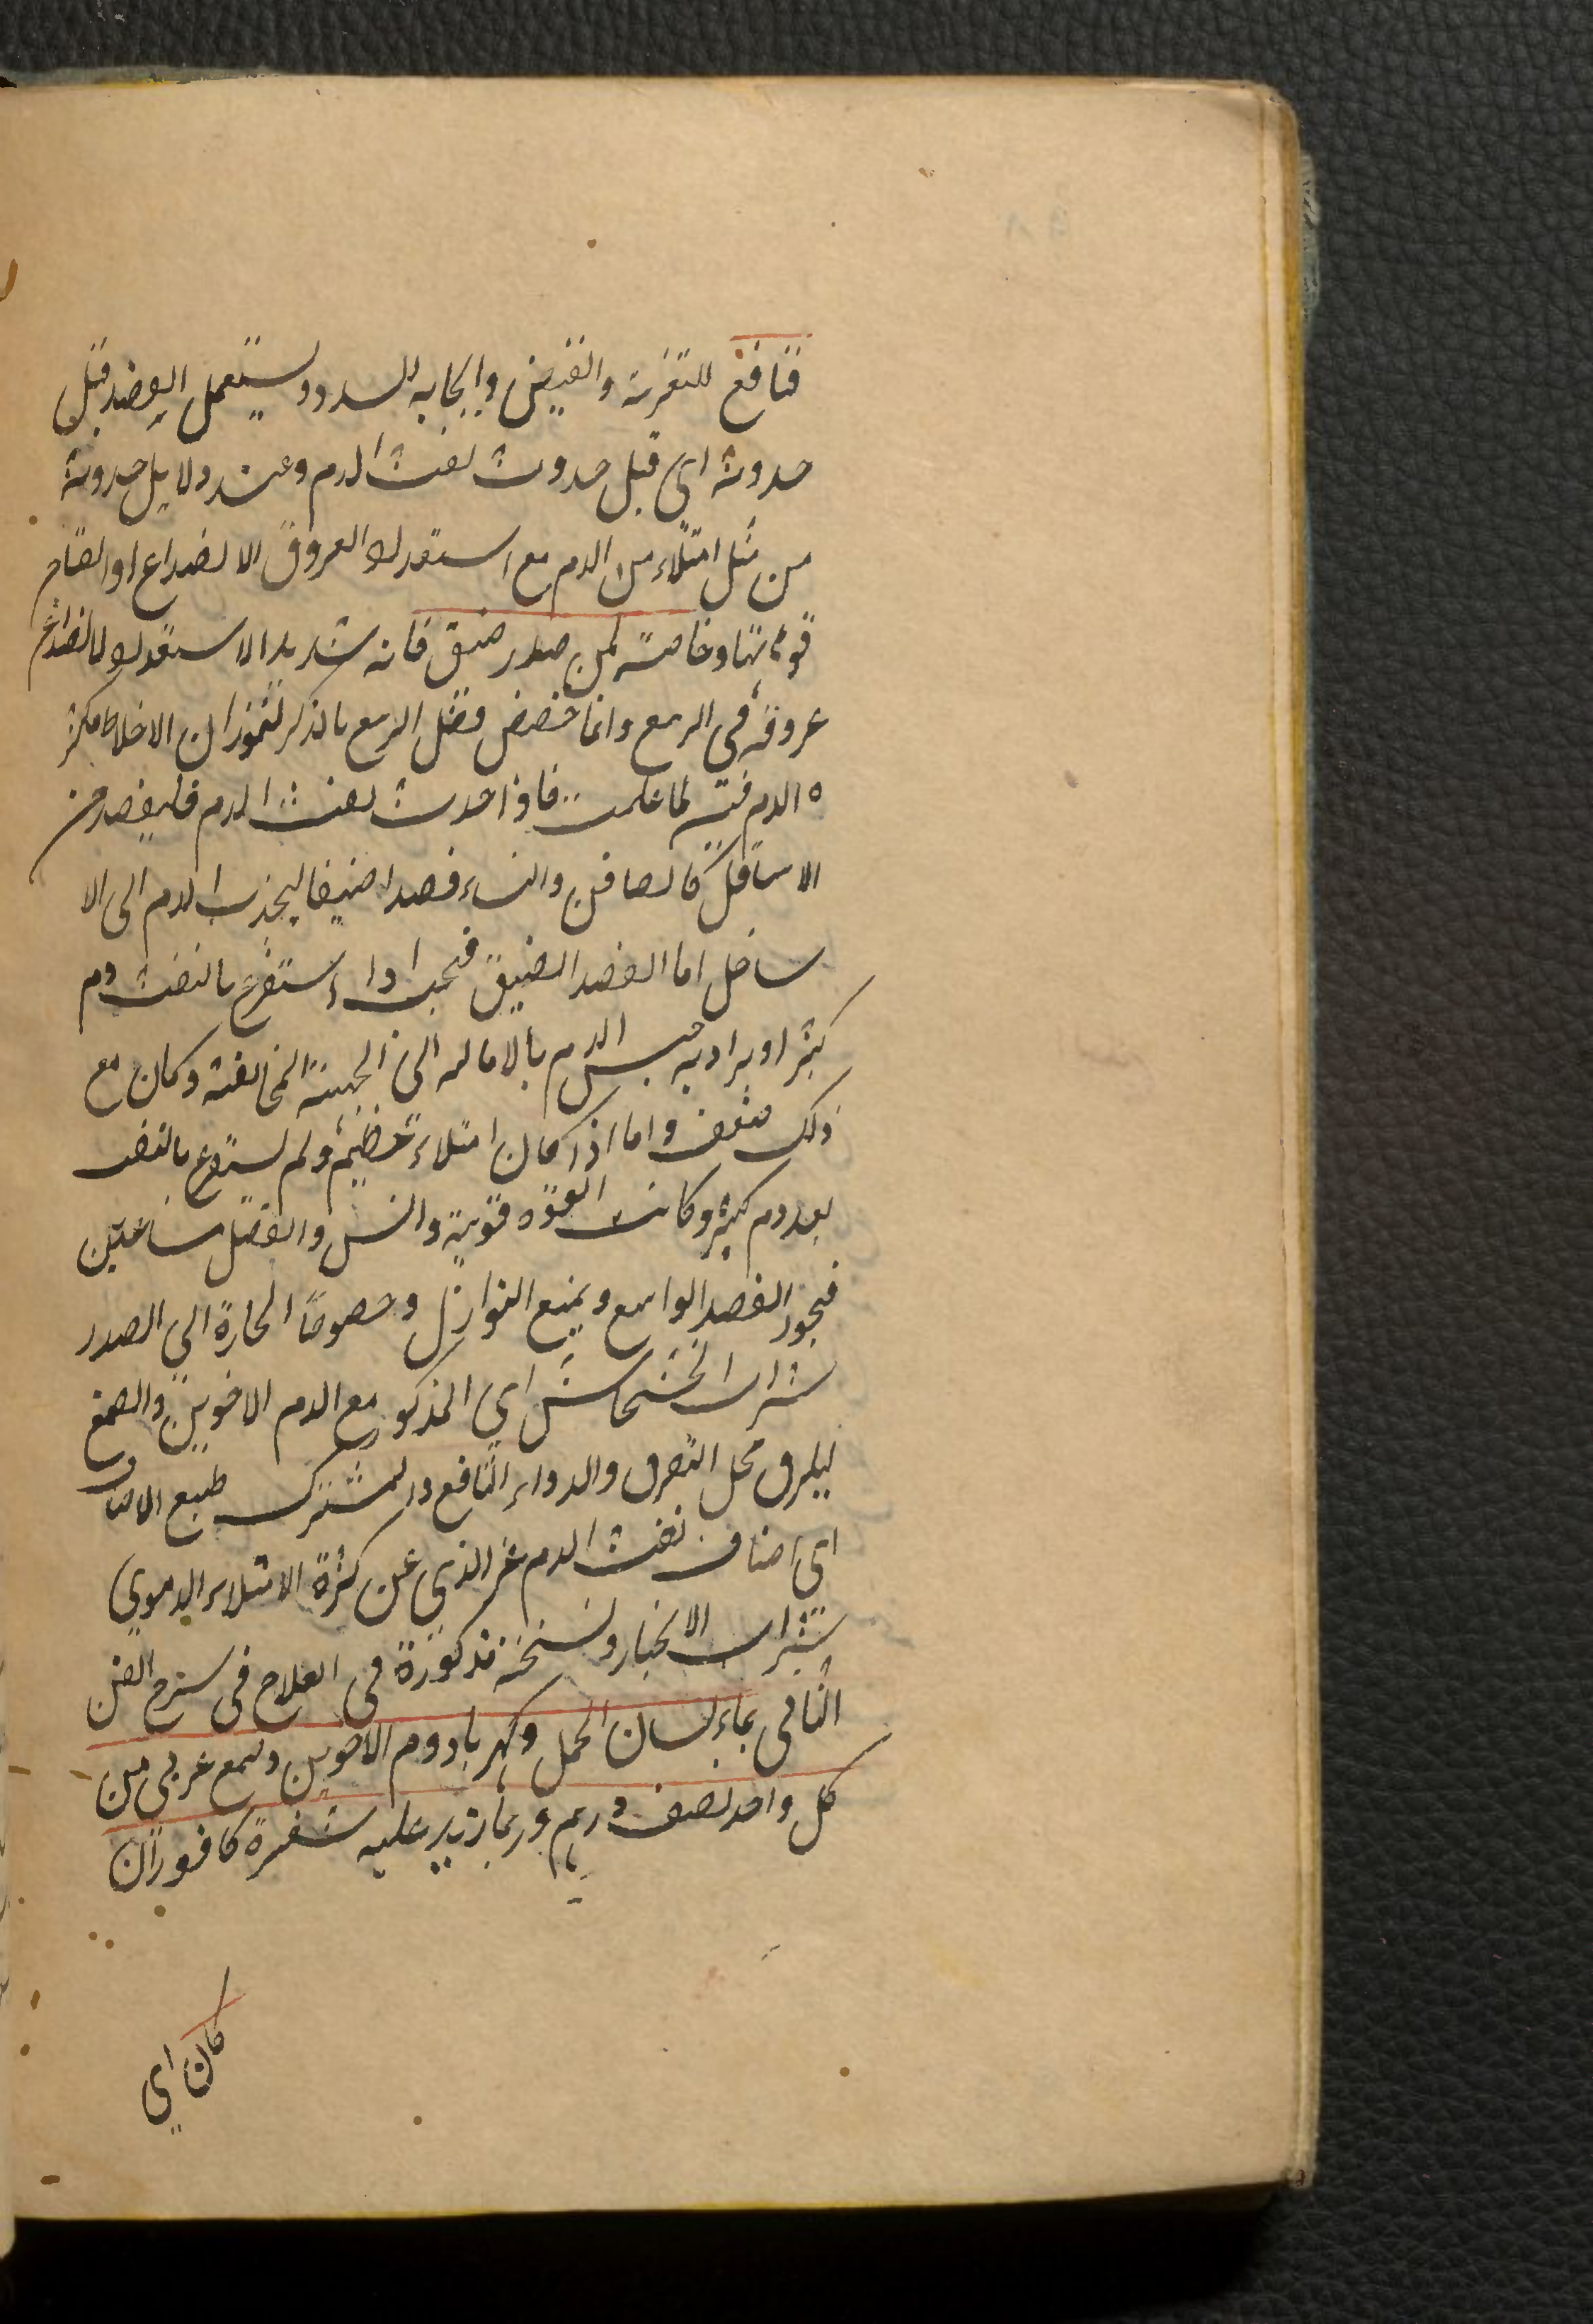 فنافع للتغرية والقبض وايجابه السدد ويستعمل الفصد قبل
حدوثه اى قبل حدوث نفث الدم وعند دلايل حدوثه
من مثل امتلاء من الدم مع استعداد العروق الانصداع او انفتاح
فوهاتها وخاصة لمن صدره ضيق فانه شديد الاستعداد لانصداع
عروقه فى الربيع وانما خصص فصل الربيع بالذكر لثوران الاخلاط وكثرة
ه الدم فيه لما علمت فاذا حدث نفث الدم فليفصد من
الاسافل كالصافن والنساء فصدا ضيقا ليجذب الدم الى الا
سافل اما الفصد الضيق فيجب اذا استفرغ بالنفث دم
كثير او يراد به حبس الدم بالامالة الى الجهة المخالفة وكان مع
ذلك ضعف واما اذا كان امتلاء عظيم ولم يستفرغ بالنفث
بعد دم كثير وكانت القوة قوية والسن والفصل مساعدين
فيجوز الفصد الواسع ويمنع النوازل وخصوصا الحارة الى الصدر
شراب الخشخاش اى المذكور مع الدم الاخوين والصمغ
ليلزق محل التفرق والدواء النافع والمشترك لجميع الاصناف
اى اصناف نفث الدم غير الذي عن كثرة الامتلاء الدموي
شراب الانجبار ونسخته مذكورة فى العلاج فى شرح الفن
الثانى بماء لسان الحمل وكهربا ودم الاخوين وصمغ عربى من
كل واحد نصف درهم وربما زيد عليه شعيرة كافور ان
كان اي